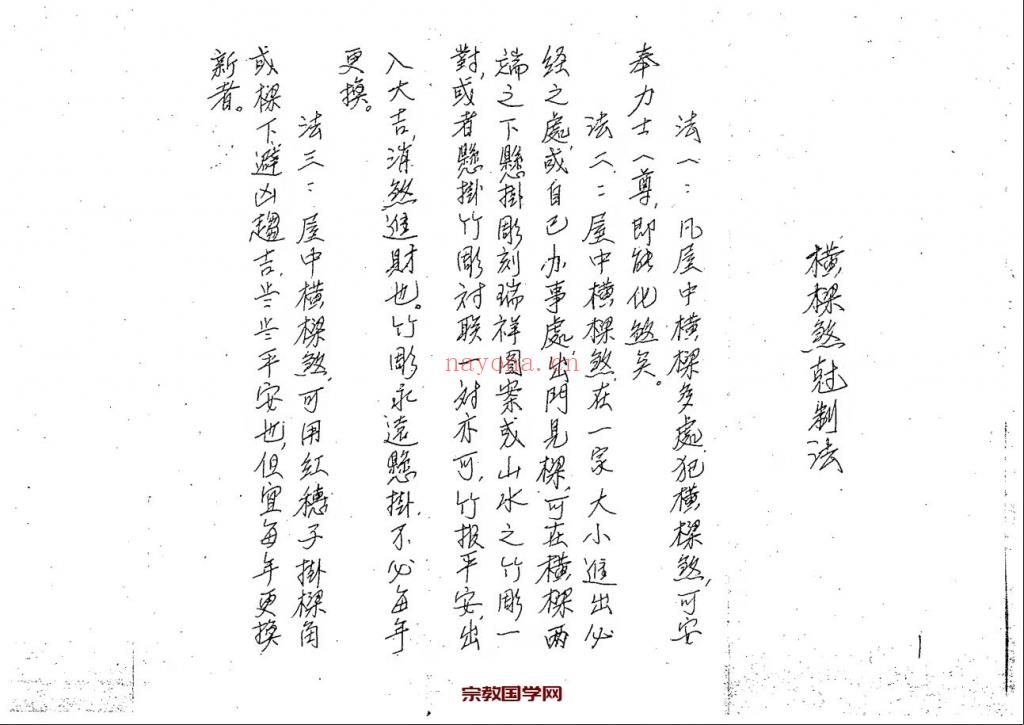 橫樑煞尅制法
法一：凡屋中橫樑多處犯橫樑煞，可安
奉力士一尊，即能化煞矣。
法二：屋中橫樑煞在一家大小進出必
经之處，或自己办事處，出門見樑，可在橫樑两
端之下懸掛彫刻瑞祥图案或山水之竹彫一
對，或者懸掛竹彫对联一对亦可，竹报平安，出
入大吉，消煞進財也。竹彫永遠懸掛，不必每年
更換。
法三：屋中橫樑煞，可用紅穗子掛樑角
或樑下避凶趨吉，岁岁平安也，但宜每年更換
新者。
1
nayona.cn
宗教国学网